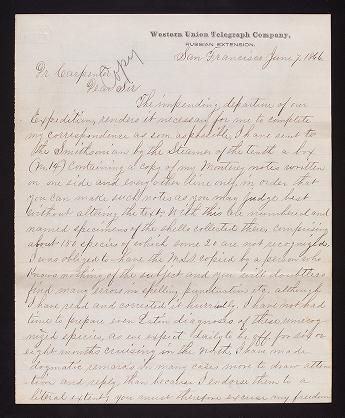 Western Union Telegraph Company,
RUSSIAN EXTENSION.
San Francisco June 7. 1866
Dr Carpenter
Copy
Dear Sir
The impending departure of our
Expedition, renders it necessary for me to complete
my correspondence as soon as possible. I have sent to
the Smithsonian by the Steamer of the tenth a box
(No. 14) containing a copy of my Monterey notes written
on one side and every other line only in order that
you can make such notes as you may judge best
without altering the text. With this are numbered and
named specimens of the shells collected there, comprising
about 150 species of which some 20 are not recognized.
I was obliged to have the MSS copied by a person who
knows nothing of the subject and you will doubtless
find many errors in spelling punctuation etc, although
I have read and corrected it hurriedly. I have not had
time to prepare even Latin diagnoses of these unrecog-
nized species, as we expect daily to be off for six or
eight months cruising in the North. I have made
dogmatic remarks in many cases more to draw atten-
tion and reply, than because I endorse them to a
literal extent, you must therefore excuse my freedom